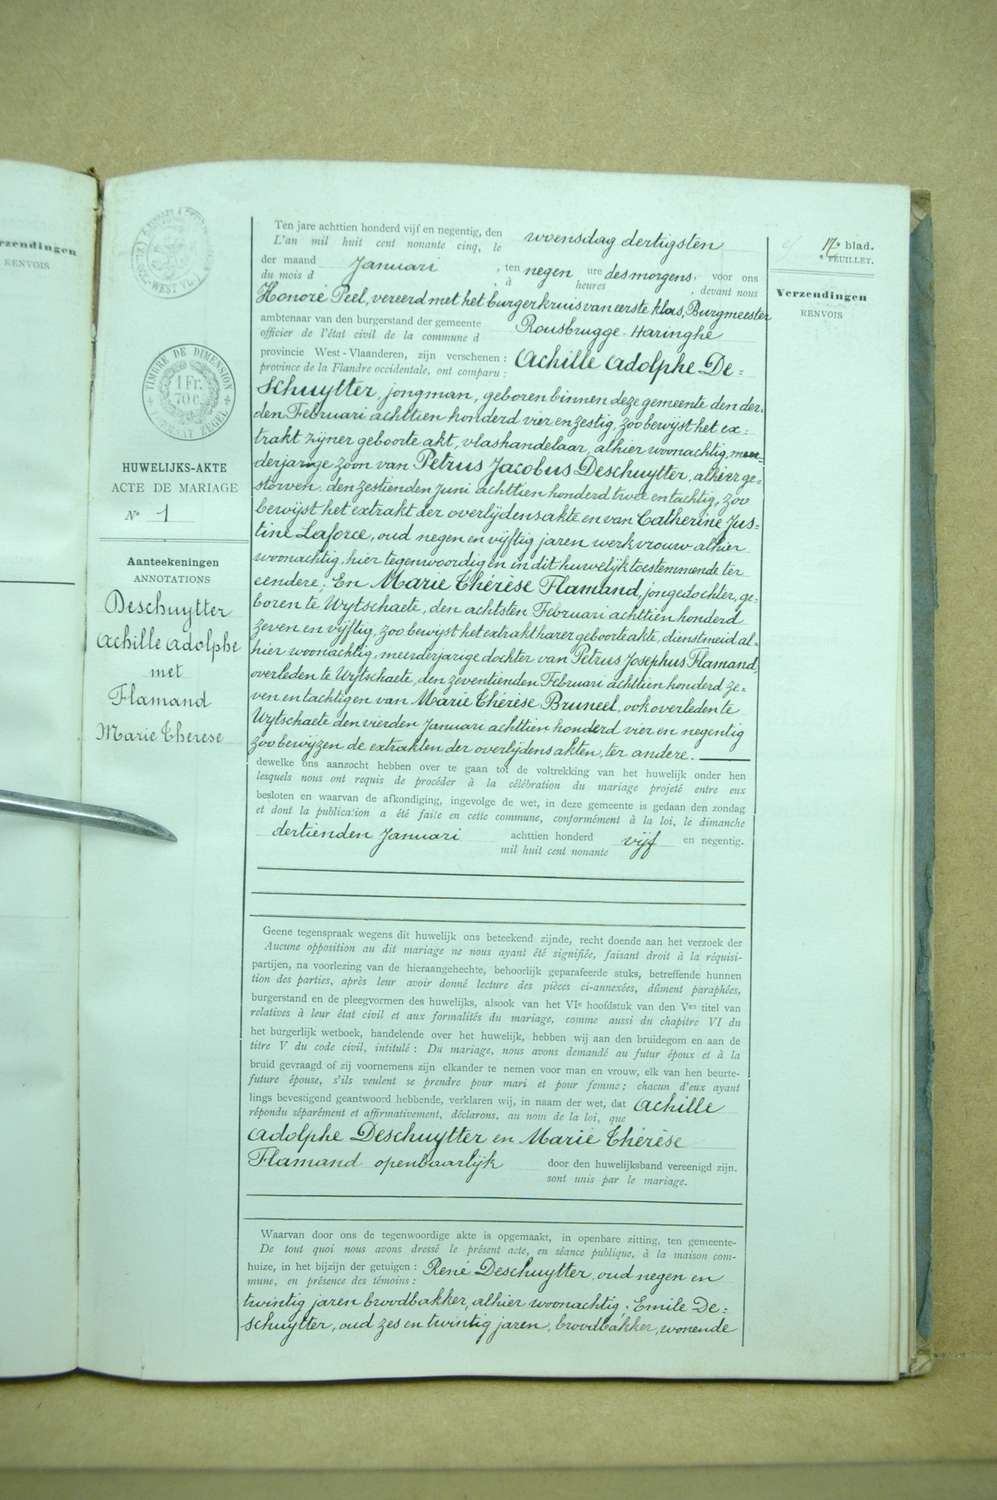 rzendingen
RENVOIS
TIMBRE DE DIMENSION
1 Fr.
70 c.
FORMAAT ZEGEL
HUWELIJKS-AKTE
ACTE DE MARIAGE
N° 1
Aanteekeningen
ANNOTATIONS
Deschuytter
Achille Adolphe
met
Flamand
Marie Therese
Ten jare achttien honderd vijf en negentig, den woensdag dertigsten
L'an mil huit cent nonante cinq, le
der maand Januari, ten negen ure des morgens, voor ons
du mois d , à heures , devant nous
Honoré Peel, vereerd met het burgerkruis van eerste klas, Burgmeester
ambtenaar van den burgerstand der gemeente Rousbrugge-Haringhe
officier de l'état civil de la commune d
provincie West-Vlaanderen, zijn verschenen : Achille Adolphe De=
province de la Flandre occidentale, ont comparu :
schuytter, jongman, geboren binnen deze gemeente den der-
den Februari achttien honderd vier en zestig, zoo bewijst het ex=
trakt zijner geboorte akt, vlashandelaar, alhier woonachtig, meer-
derjarige zoon van Petrus Jacobus Deschuytter, alhier ge=
storven den zestienden Juni achttien honderd twee en tachtig, zoo
bewijst het extrakt der overlijdensakte en van Catherine Jus=
tine Laforce, oud negen en vijftig jaren werkvrouw alhier
woonachtig, hier tegenwoordig en in dit huwelijk toestemmende ter
eendere; En Marie Thérèse Flamand, jongedochter, ge=
boren te Wytschaete, den achtsten Februari achttien honderd
zeven en vijftig, zoo bewijst het extrakt harer geboorteakte, dienstmeid al=
hier woonachtig, meerderjarige dochter van Petrus Josephus Flamand,
overleden te Wytschaete, den zeventienden Februari achttien honderd ze=
ven en tachtig en van Marie Thérèse Bruneel, ook overleden te
Wytschaete den vierden Januari achttien honderd vier en negentig
zoo bewijzen de extrakten der overlijdensakten, ter andere.
dewelke ons aanzocht hebben over te gaan tot de voltrekking van het huwelijk onder hen
lesquels nous ont requis de procéder à la célébration du mariage projeté entre eux
besloten en waarvan de afkondiging, ingevolge de wet, in deze gemeente is gedaan den zondag
et dont la publication a été faite en cette commune, conformément à la loi, le dimanche
dertienden Januari achttien honderd vijf en negentig.
mil huit cent nonante
Geene tegenspraak wegens dit huwelijk ons beteekend zijnde, recht doende aan het verzoek der
Aucune opposition au dit mariage ne nous ayant été signifiée, faisant droit à la réquisi-
partijen, na voorlezing van de hieraangehechte, behoorlijk geparafeerde stuks, betreffende hunnen
tion des parties, après leur avoir donné lecture des pièces ci-annexées, dûment paraphées,
burgerstand en de pleegvormen des huwelijks, alsook van het VIe hoofdstuk van den Ven titel van
relatives à leur état civil et aux formalités du mariage, comme aussi du chapitre VI du
het burgerlijk wetboek, handelende over het huwelijk, hebben wij aan den bruidegom en aan de
titre V du code civil, intitulé : Du mariage, nous avons demandé au futur époux et à la
bruid gevraagd of zij voornemens zijn elkander te nemen voor man en vrouw, elk van hen beurte-
future épouse, s'ils veulent se prendre pour mari et pour femme ; chacun d'eux ayant
lings bevestigend geantwoord hebbende, verklaren wij, in naam der wet, dat Achille
répondu séparément et affirmativement, déclarons, au nom de la loi, que
Adolphe Deschuytter en Marie Thérèse
Flamand openbaarlijk door den huwelijksband vereenigd zijn.
sont unis par le mariage.
Waarvan door ons de tegenwoordige akte is opgemaakt, in openbare zitting, ten gemeente-
De tout quoi nous avons dressé le présent acte, en séance publique, à la maison com-
huize, in het bijzijn der getuigen : René Deschuytter, oud negen en
mune, en présence des témoins :
twintig jaren broodbakker, alhier woonachtig. Emile De=
schuytter, oud zes en twintig jaren, broodbakker, wonende
17e blad.
FEUILLET.
Verzendingen
RENVOIS